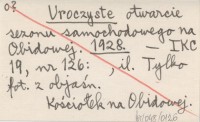 03
Uroczyste otwarcie
sezonu samochodowego na
Obidowej. 1928. — IKC
19, nr 126: , il. Tylko
fot. z objaśn.
Kościółek na Obidowej.